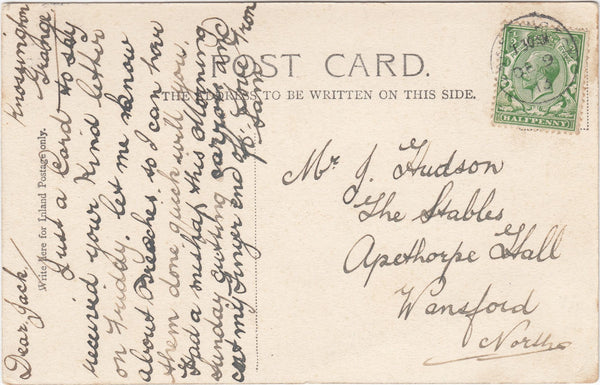 POST CARD.
THE ADDRESS TO BE WRITTEN ON THIS SIDE.
Write here for Inland Postage only.
HALFPENNY
Mr J. Hudson
The Stables
Apethorpe Hall
Wansford
North
Knossington
Grange
Dear Jack
Just a Card to say
received your Kind letter
on Friday. let me know
about Breaches so I can have
them done quick will you.
Had a mishap this Morning
Sunday Cutting carrots and
cut my finger end off.
from
Sam